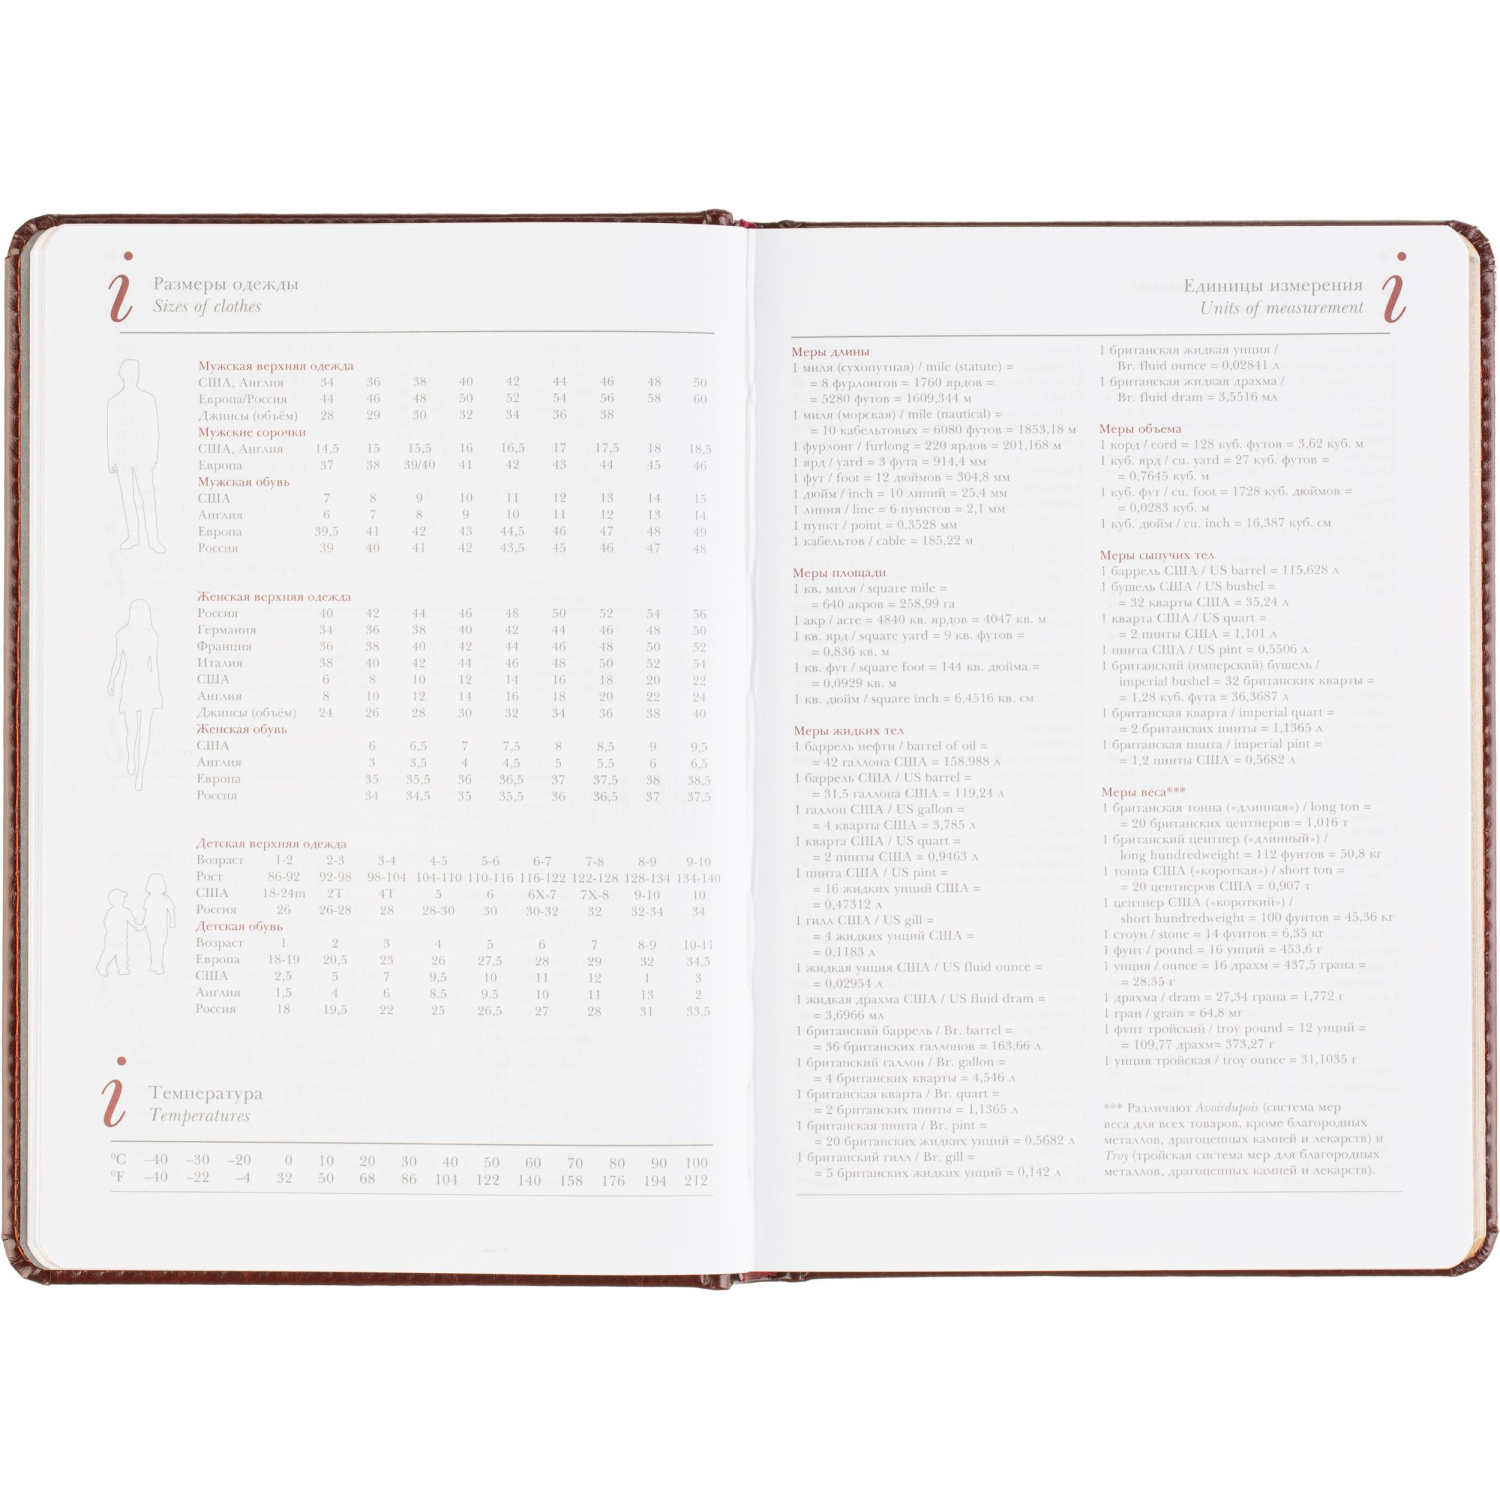 i
Размеры одежды
Sizes of clothes
Мужская верхняя одежда
США, Англия 34 36 38 40 42 44 46 48 50
Европа/Россия 44 46 48 50 52 54 56 58 60
Джинсы (объём) 28 29 30 32 34 36 38
Мужские сорочки
США, Англия 14,5 15 15,5 16 16,5 17 17,5 18 18,5
Европа 37 38 39/40 41 42 43 44 45 46
Мужская обувь
США 7 8 9 10 11 12 13 14 15
Англия 6 7 8 9 10 11 12 13 14
Европа 39,5 41 42 43 44,5 46 47 48 49
Россия 39 40 41 42 43,5 45 46 47 48
Женская верхняя одежда
Россия 40 42 44 46 48 50 52 54 56
Германия 34 36 38 40 42 44 46 48 50
Франция 36 38 40 42 44 46 48 50 52
Италия 38 40 42 44 46 48 50 52 54
США 6 8 10 12 14 16 18 20 22
Англия 8 10 12 14 16 18 20 22 24
Джинсы (объём) 24 26 28 30 32 34 36 38 40
Женская обувь
США 6 6,5 7 7,5 8 8,5 9 9,5
Англия 3 3,5 4 4,5 5 5,5 6 6,5
Европа 35 35,5 36 36,5 37 37,5 38 38,5
Россия 34 34,5 35 35,5 36 36,5 37 37,5
Детская верхняя одежда
Возраст 1-2 2-3 3-4 4-5 5-6 6-7 7-8 8-9 9-10
Рост 86-92 92-98 98-104 104-110 110-116 116-122 122-128 128-134 134-140
США 18-24m 2T 4T 5 6 6X-7 7X-8 9-10 10
Россия 26 26-28 28 28-30 30 30-32 32 32-34 34
Детская обувь
Возраст 1 2 3 4 5 6 7 8-9 10-11
Европа 18-19 20,5 23 26 27,5 28 29 32 34,5
США 2,5 5 7 9,5 10 11 12 1 3
Англия 1,5 4 6 8.5 9.5 10 11 13 2
Россия 18 19,5 22 25 26,5 27 28 31 33,5
i
Температура
Temperatures
°C –40 –30 –20 0 10 20 30 40 50 60 70 80 90 100
°F –40 –22 –4 32 50 68 86 104 122 140 158 176 194 212
Единицы измерения
Units of measurement
i
Меры длины
1 миля (сухопутная) / mile (statute) =
= 8 фурлонгов = 1760 ярдов =
= 5280 футов = 1609,344 м
1 миля (морская) / mile (nautical) =
= 10 кабельтовых = 6080 футов = 1853,18 м
1 фурлонг / furlong = 220 ярдов = 201,168 м
1 ярд / yard = 3 фута = 914,4 мм
1 фут / foot = 12 дюймов = 304,8 мм
1 дюйм / inch = 10 линий = 25,4 мм
1 линия / line = 6 пунктов = 2,1 мм
1 пункт / point = 0,3528 мм
1 кабельтов / cable = 185,22 м
Меры площади
1 кв. миля / square mile =
= 640 акров = 258,99 га
1 акр / acre = 4840 кв. ярдов = 4047 кв. м
1 кв. ярд / square yard = 9 кв. футов =
= 0,836 кв. м
1 кв. фут / square foot = 144 кв. дюйма =
= 0,0929 кв. м
1 кв. дюйм / square inch = 6,4516 кв. см
Меры жидких тел
1 баррель нефти / barrel of oil =
= 42 галлона США = 158,988 л
1 баррель США / US barrel =
= 31,5 галлона США = 119,24 л
1 галлон США / US gallon =
= 4 кварты США = 3,785 л
1 кварта США / US quart =
= 2 пинты США = 0,9463 л
1 пинта США / US pint =
= 16 жидких унций США =
= 0,47312 л
1 гилл США / US gill =
= 4 жидких унций США =
= 0,1183 л
1 жидкая унция США / US fluid ounce =
= 0,02954 л
1 жидкая драхма США / US fluid dram =
= 3,6966 мл
1 британский баррель / Br. barrel =
= 36 британских галлонов = 163,66 л
1 британский галлон / Br. gallon =
= 4 британских кварты = 4,546 л
1 британская кварта / Br. quart =
= 2 британских пинты = 1,1365 л
1 британская пинта / Br. pint =
= 20 британских жидких унций = 0,5682 л
1 британский гилл / Br. gill =
= 5 британских жидких унций = 0,142 л
1 британская жидкая унция /
Br. fluid ounce = 0,02841 л
1 британская жидкая драхма /
Br. fluid dram = 3,5516 мл
Меры объема
1 корд / cord = 128 куб. футов = 3,62 куб. м
1 куб. ярд / cu. yard = 27 куб. футов =
= 0.7645 куб. м
1 куб. фут / cu. foot = 1728 куб. дюймов =
= 0,0283 куб. м
1 куб. дюйм / cu. inch = 16,387 куб. см
Меры сыпучих тел
1 баррель США / US barrel = 115,628 л
1 бушель США / US bushel =
= 32 кварты США = 35,24 л
1 кварта США / US quart =
= 2 пинты США = 1,101 л
1 пинта США / US pint = 0,5506 л
1 британский (имперский) бушель /
imperial bushel = 32 британских кварты =
= 1,28 куб. фута = 36,3687 л
1 британская кварта / imperial quart =
= 2 британских пинты = 1,1365 л
1 британская пинта / imperial pint =
= 1,2 пинты США = 0,5682 л
Меры веса***
1 британская тонна («длинная») / long ton =
= 20 британских центнеров = 1,016 т
1 британский центнер («длинный») /
long hundredweight = 112 фунтов = 50,8 кг
1 тонна США («короткая») / short ton =
= 20 центнеров США = 0,907 т
1 центнер США («короткий») /
short hundredweight = 100 фунтов = 45,36 кг
1 стоун / stone = 14 фунтов = 6,35 кг
1 фунт / pound = 16 унций = 453,6 г
1 унция / ounce = 16 драхм = 437,5 грана =
= 28,35 г
1 драхма / dram = 27,34 грана = 1,772 г
1 гран / grain = 64,8 мг
1 фунт тройский / troy pound = 12 унций =
= 109,77 драхм= 373,27 г
1 унция тройская / troy ounce = 31,1035 г
*** Различают Avoirdupois (система мер
веса для всех товаров, кроме благородных
металлов, драгоценных камней и лекарств) и
Troy (тройская система мер для благородных
металлов, драгоценных камней и лекарств).